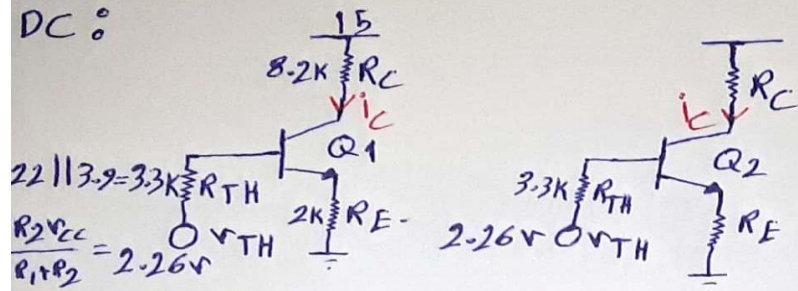 DC:
15
8.2K RC
iC
Q1
22||3.9=3.3K RTH
2K RE
R2VCC/R1+R2 = 2.26V VTH
RC
iC
Q2
3.3K RTH
RE
2.26V VTH